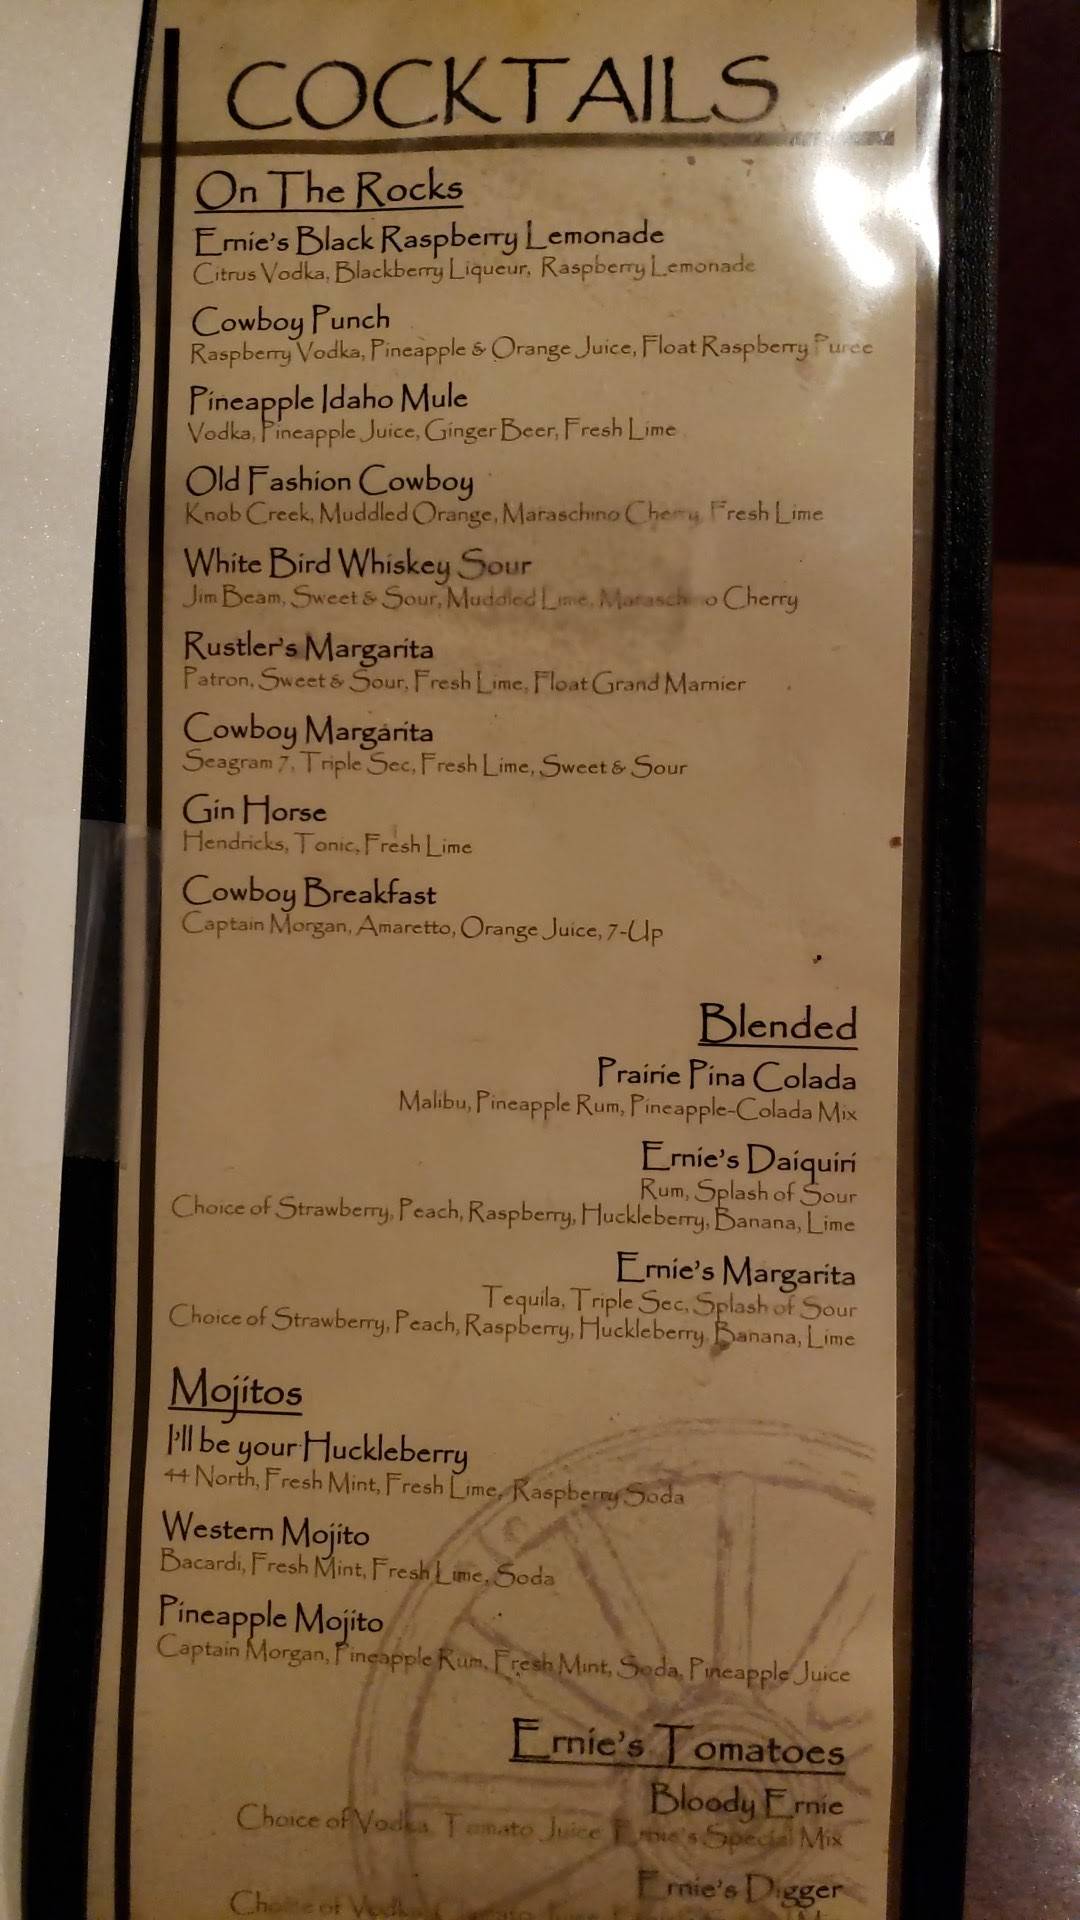 COCKTAILS
On The Rocks
Ernie's Black Raspberry Lemonade
Citrus Vodka, Blackberry Liqueur, Raspberry Lemonade
Cowboy Punch
Raspberry Vodka, Pineapple & Orange Juice, Float Raspberry Puree
Pineapple Idaho Mule
Vodka, Pineapple Juice, Ginger Beer, Fresh Lime
Old Fashion Cowboy
Knob Creek, Muddled Orange, Maraschino Cherry, Fresh Lime
White Bird Whiskey Sour
Jim Beam, Sweet & Sour, Muddled Lime, Maraschino Cherry
Rustler's Margarita
Patron, Sweet & Sour, Fresh Lime, Float Grand Marnier
Cowboy Margarita
Seagram 7, Triple Sec, Fresh Lime, Sweet & Sour
Gin Horse
Hendricks, Tonic, Fresh Lime
Cowboy Breakfast
Captain Morgan, Amaretto, Orange Juice, 7-Up
Blended
Prairie Pina Colada
Malibu, Pineapple Rum, Pineapple-Colada Mix
Ernie's Daiquiri
Rum, Splash of Sour
Choice of Strawberry, Peach, Raspberry, Huckleberry, Banana, Lime
Ernie's Margarita
Tequila, Triple Sec, Splash of Sour
Choice of Strawberry, Peach, Raspberry, Huckleberry, Banana, Lime
Mojitos
I'll be your Huckleberry
44 North, Fresh Mint, Fresh Lime, Raspberry Soda
Western Mojito
Bacardi, Fresh Mint, Fresh Lime, Soda
Pineapple Mojito
Captain Morgan, Pineapple Rum, Fresh Mint, Soda, Pineapple Juice
Ernie's Tomatoes
Bloody Ernie
Choice of Vodka, Tomato Juice, Ernie's Special Mix
Ernie's Digger
Choice of Vodka